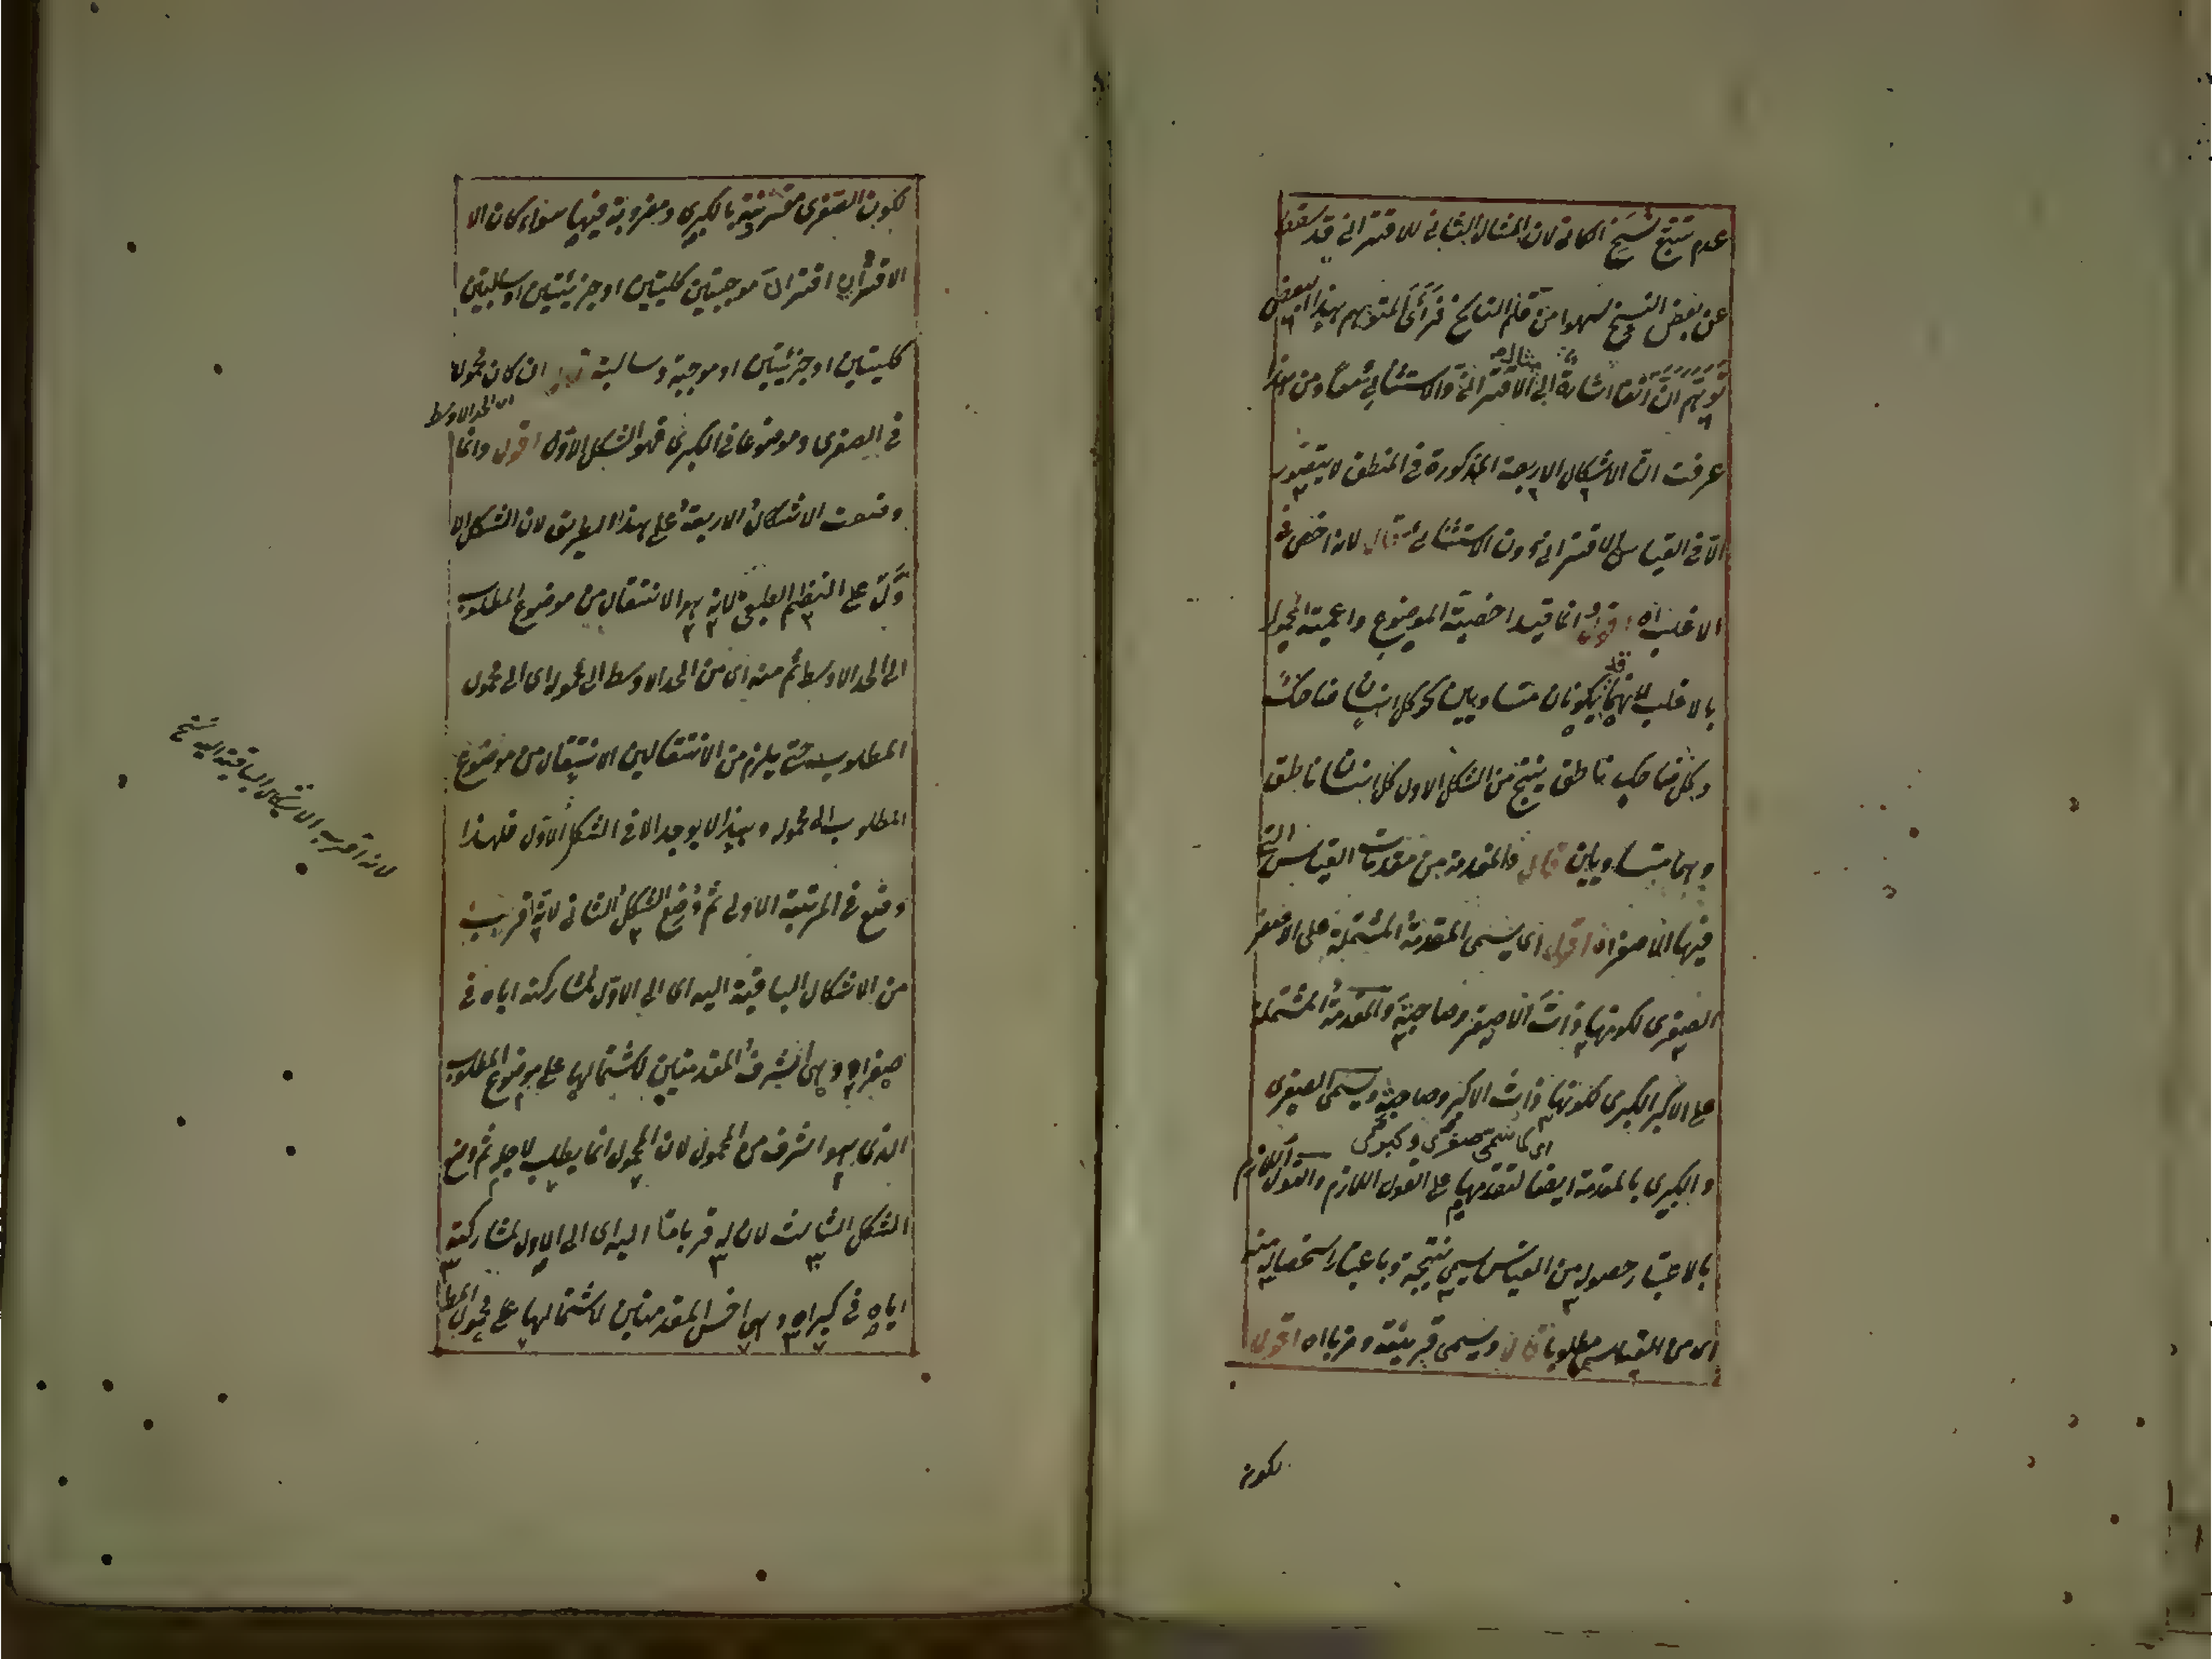 عدم تتبع نسخ الكاتى لان المثال الثانى للاقترانى قد سقط
عن بعض النسخ سهوا من قلم الناسخ فرأى المتوهم بهذا البعض
توهم ان انفا اشارة الى مثال الاقترانى والاستثنائى معا ومن هذا
عرفت ان الاشكال الاربعة المذكورة فى المنطق لا يتصور
الا فى القياس الاقترانى دون الاستثنائى قال لانه اخص فى
الاغلب اه اقول وانما قيد اخصية الموضوع واعمية المحمول
بالاغلب لانهما قد يكونان متساويين نحو كل انسان ضاحك
وكل ضاحك ناطق ينتج من الشكل الاول كل انسان ناطق
وهما متساويين قال والمقدمة من مقدمات القياس التى
فيها الاصغر اه اقول اى يسمى المقدمة المشتملة على الاصغر
الصغرى لكونها ذات الاصغر وصاحبته والمقدمة المشتملة
على الاكبر الكبرى لكونها ذات الاكبر وصاحبته ويسمى الصغرى
اى كما تسمى صغرى وكبرى
والكبرى بالمقدمة ايضا لتقدمها على القول اللازم والقول اللازم
بالاعتبار حصوله من القياس يسمى نتيجة وباعتبار استحصاله منه
اى من القياس يسمى مطلوبا قال ويسمى قرينة وضربا اه اقول
لكون
لكون الصغرى مقترنة بالكبرى ومضروبة فيها سواء كان الا
الاقتران اقتران موجبتين كليتين او جزئيتين او سالبتين
كليتين او جزئيتين او موجبة وسالبة قوله ان كان محمولا
اى الحد الاوسط
فى الصغرى وموضوعا فى الكبرى فهو الشكل الاول اقول وانما
وضعت الاشكال الاربعة على هذا الطريق لان الشكل الا
ول على النظم الطبيعى لانه هو الانتقال من موضوع المطلوب
الى الحد الاوسط ثم منه اى من الحد الاوسط الى محموله اى الى محمول
المطلوب حتى يلزم من الانتقالين الانتقال من موضوع
المطلوب الى محموله وهذا لا يوجد الا فى الشكل الاول فلهذا
وضع فى المرتبة الاولى ثم وضع الشكل الثانى لانه اقرب
من الاشكال الباقية اليه اى الى الاول لمشاركته اياه فى
صغراه وهى اشرف المقدمتين لاشتمالها على موضوع المطلوب
الذى هو اشرف من المحمول لان المحمول انما يطلب لاجله ثم وضع
الشكل الثالث لان له قربا ما اليه اى الى الاول لمشاركته
اياه فى كبراه وهى اخس المقدمتين لاشتمالها على محمول المط
لانه اقرب الاشكال الباقية اليه نسخ